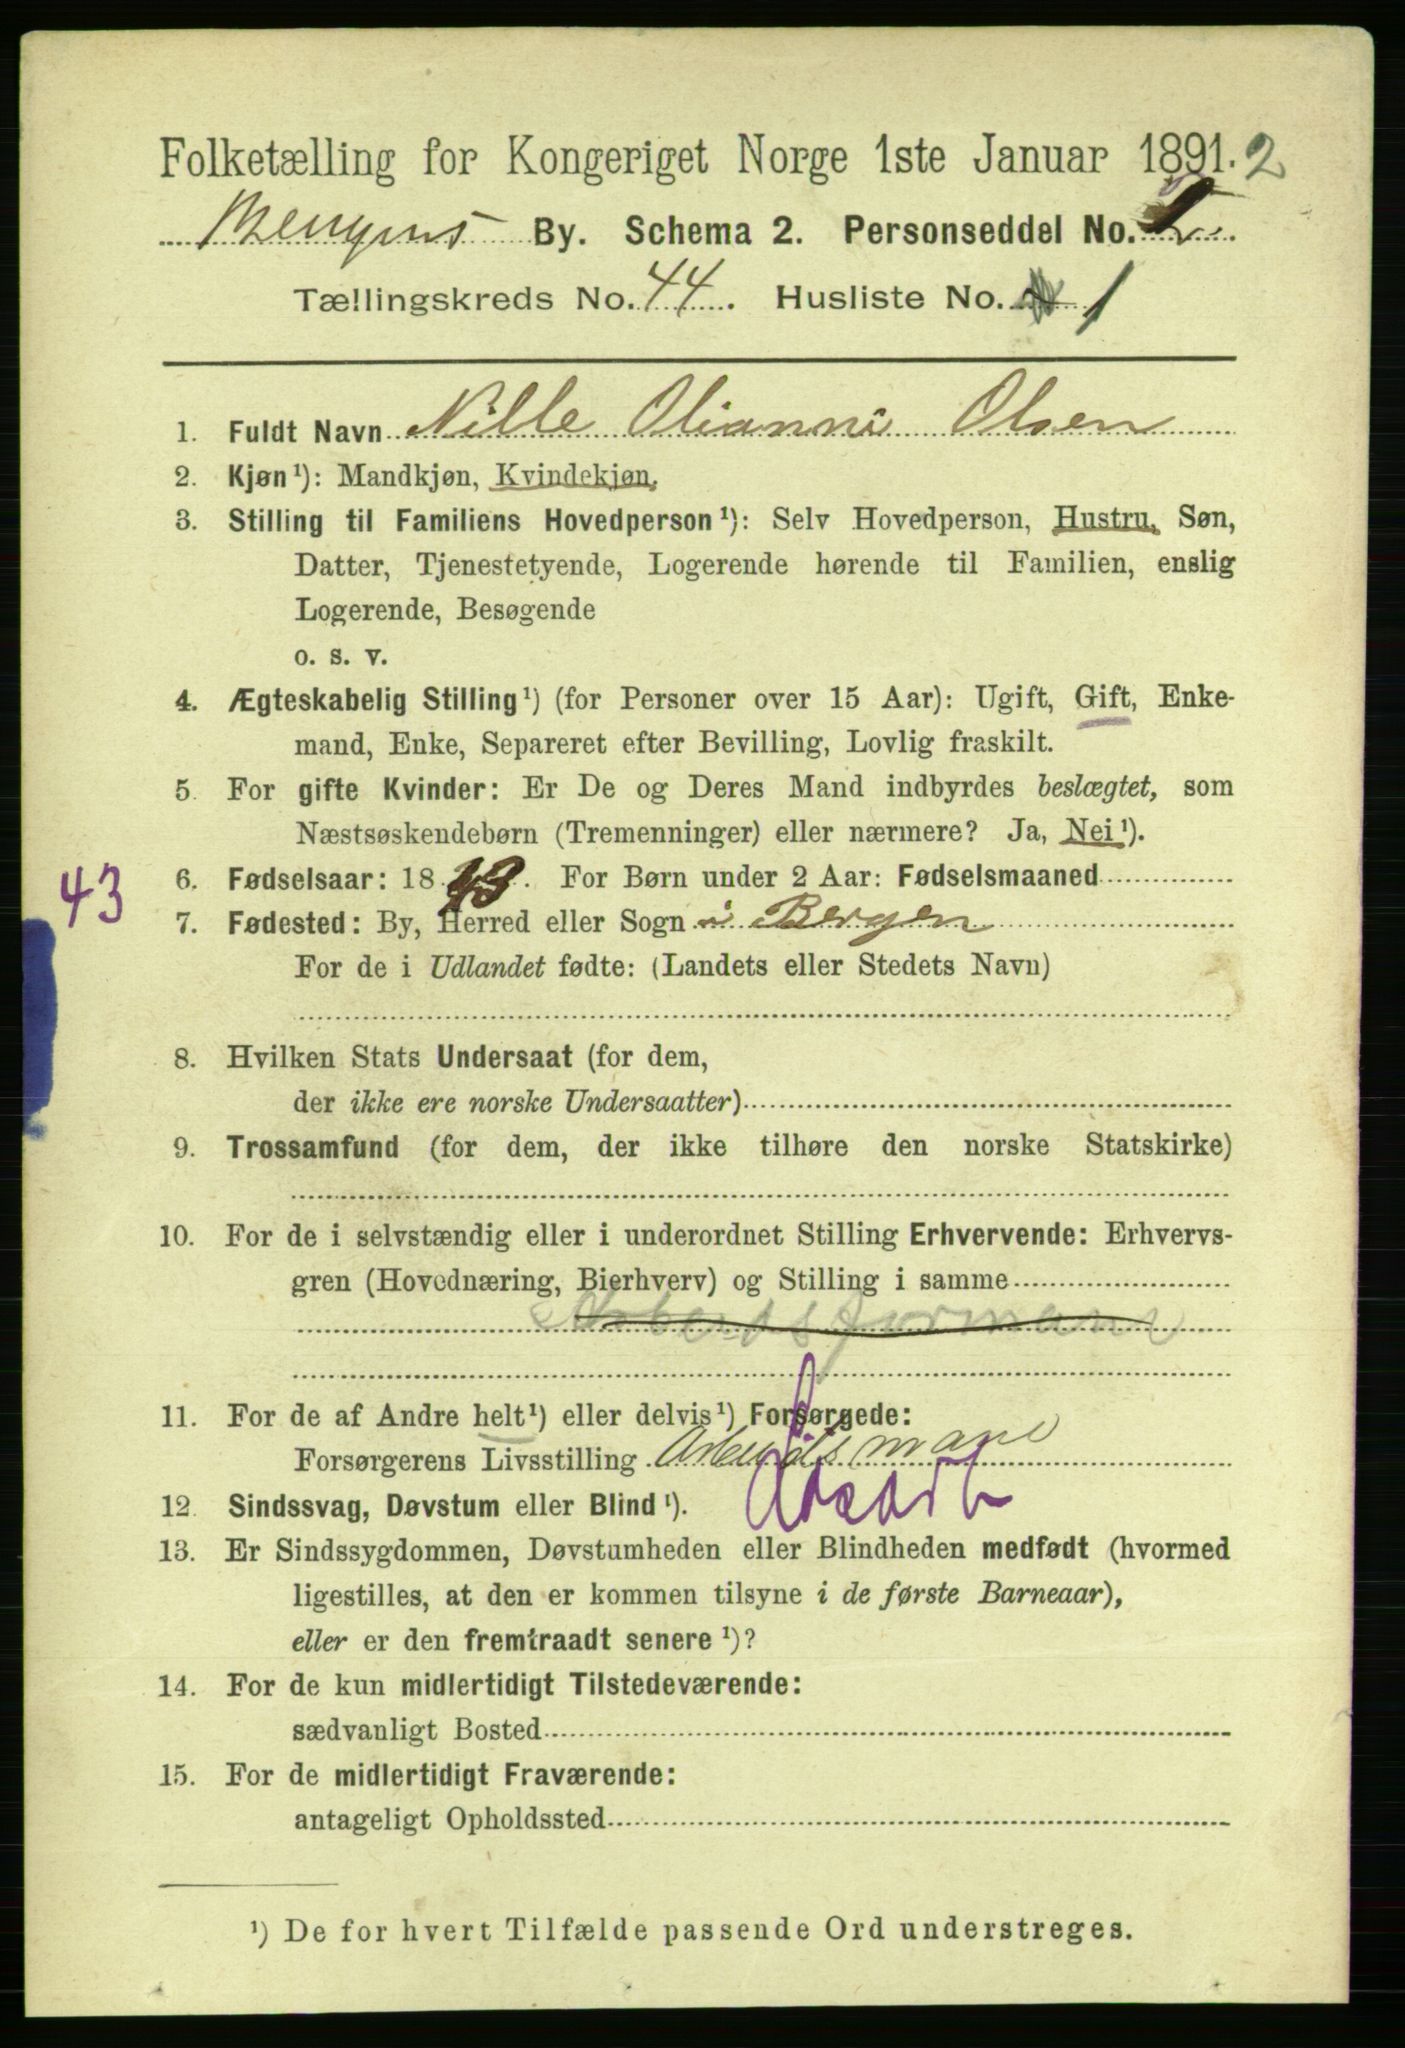 Folketælling for Kongeriget Norge 1ste Januar 1891. 2
By. Schema 2. Personseddel No.
Tællingskreds No. 44. Husliste No. 1
1. Fuldt Navn Nille Olianna Olsen
2. Kjøn ¹): Mandkjøn, Kvindekjøn.
3. Stilling til Familiens Hovedperson ¹): Selv Hovedperson, Hustru, Søn,
Datter, Tjenestetyende, Logerende hørende til Familien, enslig
Logerende, Besøgende
o. s. v.
4. Ægteskabelig Stilling ¹) (for Personer over 15 Aar): Ugift, Gift, Enke-
mand, Enke, Separeret efter Bevilling, Lovlig fraskilt.
5. For gifte Kvinder: Er De og Deres Mand indbyrdes beslægtet, som
Næstsøskendebørn (Tremenninger) eller nærmere? Ja, Nei ¹).
43 6. Fødselsaar: 1843. For Børn under 2 Aar: Fødselsmaaned
7. Fødested: By, Herred eller Sogn i Bergen
For de i Udlandet fødte: (Landets eller Stedets Navn)
8. Hvilken Stats Undersaat (for dem,
der ikke ere norske Undersaatter)
9. Trossamfund (for dem, der ikke tilhøre den norske Statskirke)
10. For de i selvstændig eller i underordnet Stilling Erhvervende: Erhvervs-
gren (Hovednæring, Bierhverv) og Stilling i samme
Arbeidsformann
11. For de af Andre helt ¹) eller delvis ¹) Forsørgede:
Forsørgerens Livsstilling Arbeidsmann
12. Sindssvag, Døvstum eller Blind ¹).
13. Er Sindssygdommen, Døvstumheden eller Blindheden medfødt (hvormed
ligestilles, at den er kommen tilsyne i de første Barneaar),
eller er den fremtraadt senere ¹)?
14. For de kun midlertidigt Tilstedeværende:
sædvanligt Bosted
15. For de midlertidigt Fraværende:
antageligt Opholdssted
¹) De for hvert Tilfælde passende Ord understreges.